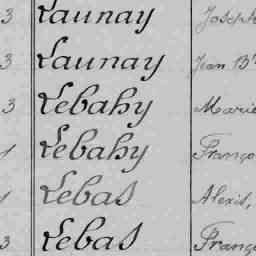 3 Launay Joseph
3 Launay Jean Bte
3 Lebahy Marie
1 Lebahy Franço
1 Lebas Alexis,
3 Lebas Franço